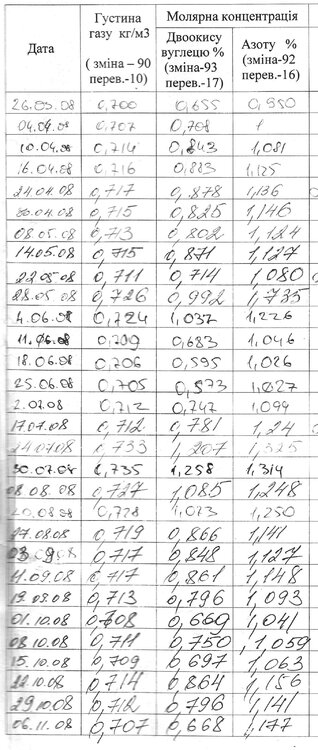 Дата Густина газу кг/м3 (зміна – 90 перев.-10) Молярна концентрація
Двоокису вуглецю % (зміна-93 перев.-17) Азоту % (зміна-92 перев.-16)
26.03.08 0,700 0,655 0,950
04.04.08 0,707 0,708 1
10.04.08 0,714 0,843 1,081
16.04.08 0,716 0,883 1,125
24.04.08 0,717 0,878 1,136
30.04.08 0,715 0,825 1,146
08.05.08 0,713 0,802 1,124
14.05.08 0,715 0,871 1,127
22.05.08 0,711 0,714 1,080
28.05.08 0,726 0,992 1,735
4.06.08 0,724 1,037 1,226
11.06.08 0,709 0,683 1,046
18.06.08 0,706 0,595 1,026
25.06.08 0,705 0,573 1,027
2.07.08 0,712 0,747 1,099
17.07.08 0,712 0,781 1,24
24.07.08 0,733 1,207 1,325
30.07.08 0,735 1,258 1,314
08.08.08 0,727 1,085 1,248
20.08.08 0,728 1,073 1,250
27.08.08 0,719 0,866 1,141
03.9.08 0,717 0,848 1,127
11.09.08 0,717 0,861 1,148
19.09.08 0,713 0,796 1,093
01.10.08 0,708 0,669 1,041
08.10.08 0,711 0,750 1,059
15.10.08 0,709 0,697 1,063
22.10.08 0,714 0,864 1,156
29.10.08 0,712 0,796 1,141
06.11.08 0,707 0,668 1,177